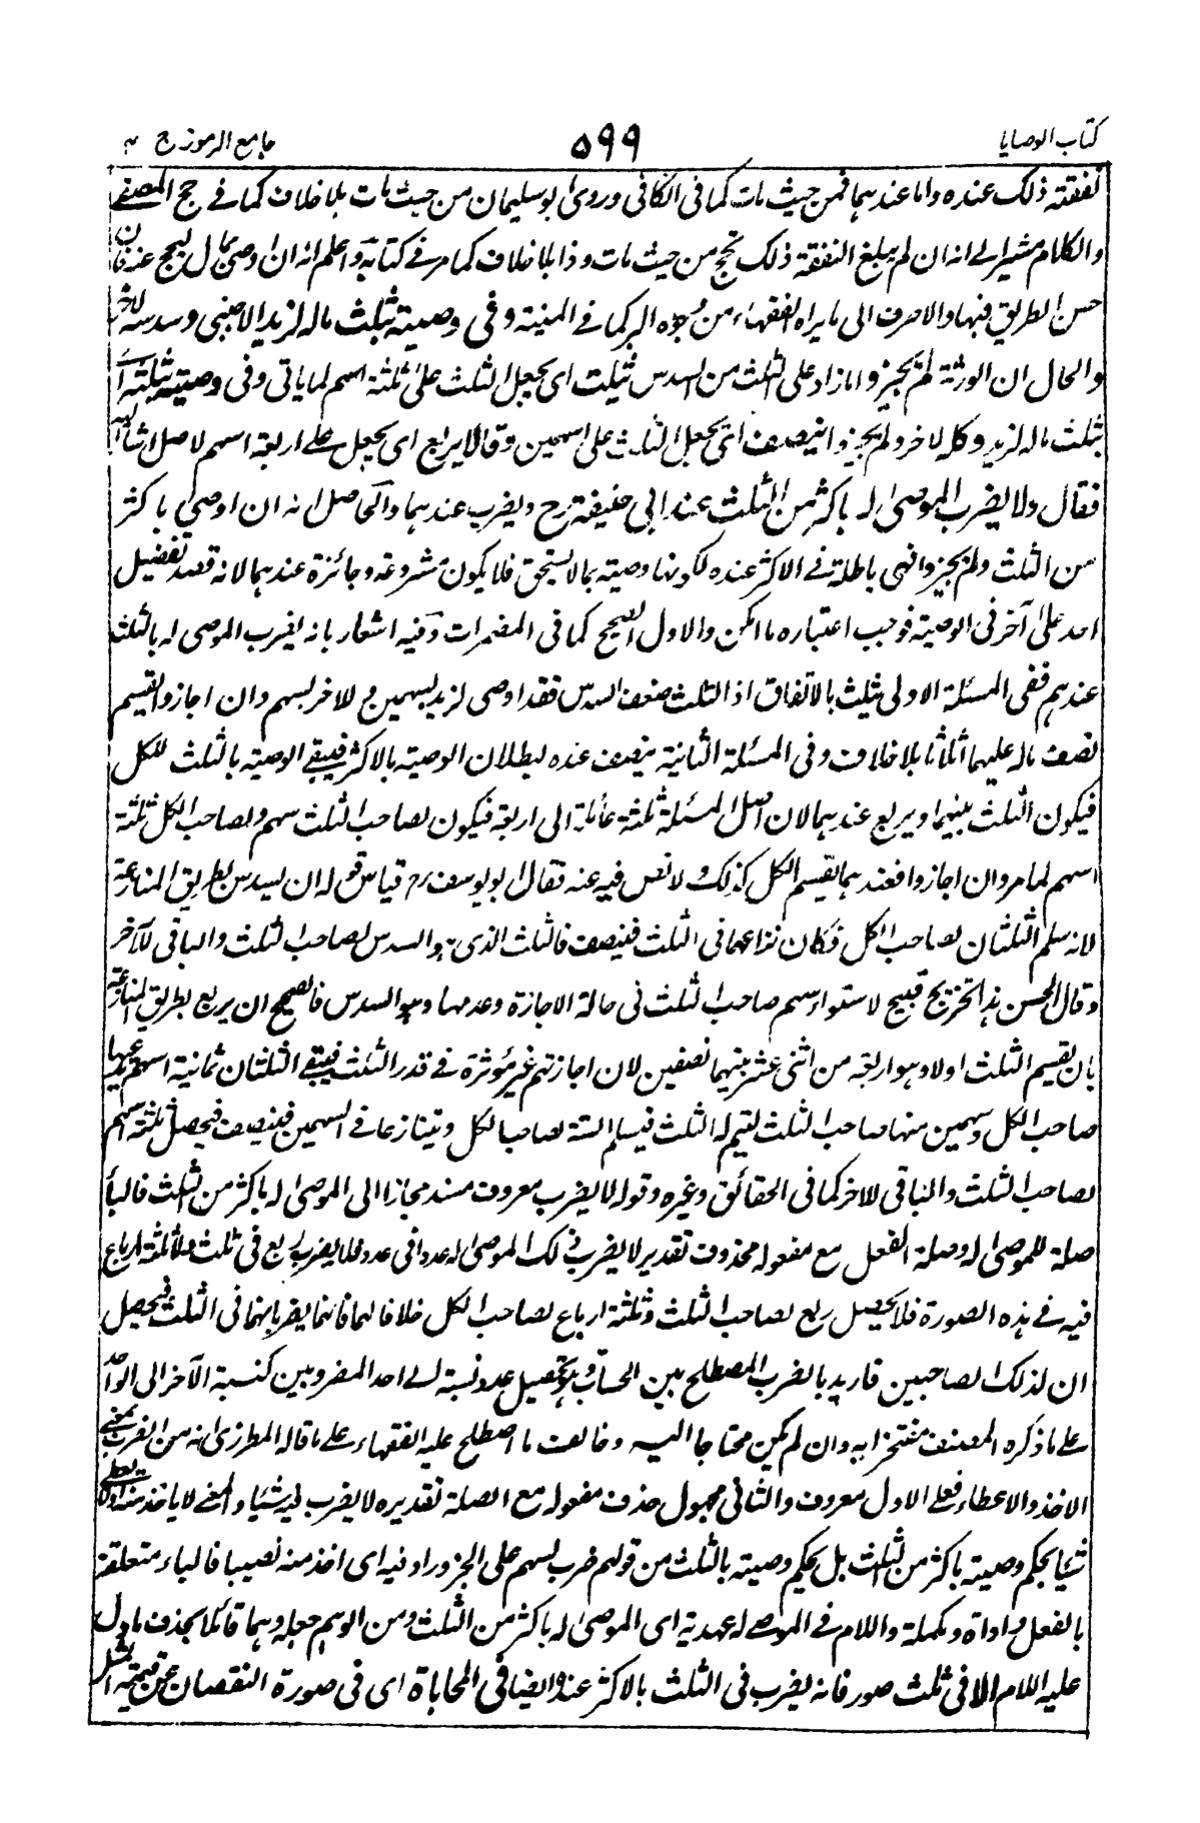 كتاب الوصايا
٥٩٩
جامع الرموز ج ٣
نفقته ذلك عنده واما عندهما فمن حيث مات كما فى الكافى وروى ابو سليمان من حيث مات بلا خلاف كما فے حج المصفے
والكلام مشير الے انه ان لم يبلغ النفقة ذلك تحج من حيث مات وذا بلا خلاف كما مر فے كتابه واعلم انه ان اوصى بمال ليحج عنه فان
حسن الطريق فبها والا صرف الى ما يراه الفقهاء من وجوه البر كما فے المنية وفى وصيته بثلث ماله لزيد الاجنبى وسدسه لآخر
والحال ان الورثة لم تجيزوا ما زاد على الثلث من السدس ثلثت اى يجعل الثلث على ثلثة اسهم لما ياتى وفى وصيته بثلثه
بثلث ماله لزيد وكله لاخر ولم يجيزوا ينصف اى يجعل الثلث على سهمين وقالا يربع اى يجعل علے اربعة اسهم لاصل اشار اليه
فقال ولا يضرب الموصى له باكثر من الثلث عند ابى حنيفة رح ويضرب عندهما والحاصل انه ان اوصى باكثر
من الثلث ولم يجيزوا فهى باطلة فے الاكثر عنده لكونها وصية بما لا يستحق فلا يكون مشروعة وجائزة عندهما لانه قصد تفضيل
احد على آخر فى الوصية فوجب اعتباره ما امكن والاول الصحيح كما فى المضمرات وفيه اشعار بانه يضرب الموصى له بالثلث
عندهم ففى المسئلة الاولى يثلث بالاتفاق اذ الثلث ضعف السدس فقد اوصى لزيد بسهمين و للاخر بسهم وان اجازوا يقسم
نصف ماله عليهما اثلاثا بلا خلاف وفى المسئلة الثانية ينصف عنده لبطلان الوصية بالاكثر فيبقے الوصية بالثلث للكل
فيكون الثلث بينهما ويربع عندهما لان اصل المسئلة ثلثة عائلة الى اربعة فيكون لصاحب الثلث سهم ولصاحب الكل ثلثة
اسهم لما مر وان اجازوا فعندهما يقسم الكل كذلك ولا نص فيه عنه فقال ابو يوسف رح قياس قوله ان يسدس بطريق المنازعة
لانه سلم الثلثان لصاحب الكل فكان نزاعهما فى الثلث فينصف فالثلث الذى هو السدس لصاحب الثلث والباقى للآخر
وقال الحسن هذا تخريج قبيح لاستواء سهم صاحب الثلث فى حالة الاجازة وعدمها وهو السدس فالصحيح ان يربع بطريق المنازعة
بان يقسم الثلث اولا وهو اربعة من اثنى عشر بينهما نصفين لان اجازتهم غير مؤثرة فے قدر الثلث فيبقے الثلثان ثمانية اسهم يدعيها
صاحب الكل وسهمين منها صاحب الثلث ليتم له الثلث فيسلم الستة لصاحب الكل ويتنازعا فے السهمين فينصف فيحصل ثلثة اسهم
لصاحب الثلث والباقى للاخر كما فى الحقائق وغيره وقوله لا يضرب معروف مسند مجازا الى الموصى له باكثر من الثلث فالباء
صلة للموصى له وصلة الفعل مع مفعوله محذوف تقديره لا يضرب ذلك الموصى له عددا فى عدد فلا يضرب ربع فى ثلث ولا ثلثة ارباع
فيه فے هذه الصورة فلا يحصل ربع لصاحب الثلث وثلثة ارباع لصاحب الكل خلافا لهما فانهما يضربانهما فى الثلث فيحصل
ان لذلك الصاحبين فاريد بالضرب المصطلح بين الحساب وهو تحصيل عدد نسبة الے احد المضروبين كنسبة الآخر الى الواحد
علے ما ذكره المصنف مفتخرا به وان لم يكن محتاجا اليه وخالف ما اصطلح عليه الفقهاء علے ما قاله المطرزى انه من الضرب بمعنے
الاخذ والاعطاء فعلے الاول معروف والثانى مجهول حذف مفعوله مع الصلة تقديره لا يضرب فيه شيئا والمعنے لا ياخذ منه اولا يعطے
شيئا بحكم وصية باكثر من الثلث بل بحكم وصية بالثلث من قولهم ضرب بسهم على الجزور او فيه اى اخذ منه نصيبا فالباء متعلقة
بالفعل واداة ومكملة واللام فے الموصے له عهدية اى الموصى له باكثر من الثلث ومن الوهم جعله وهما قائلا بحذف ما دل
عليه اللام الا فى ثلث صور فانه يضرب فى الثلث بالاكثر عنده ايضا فى المحاباة اى فى صورة النقصان عن قيمة المثل